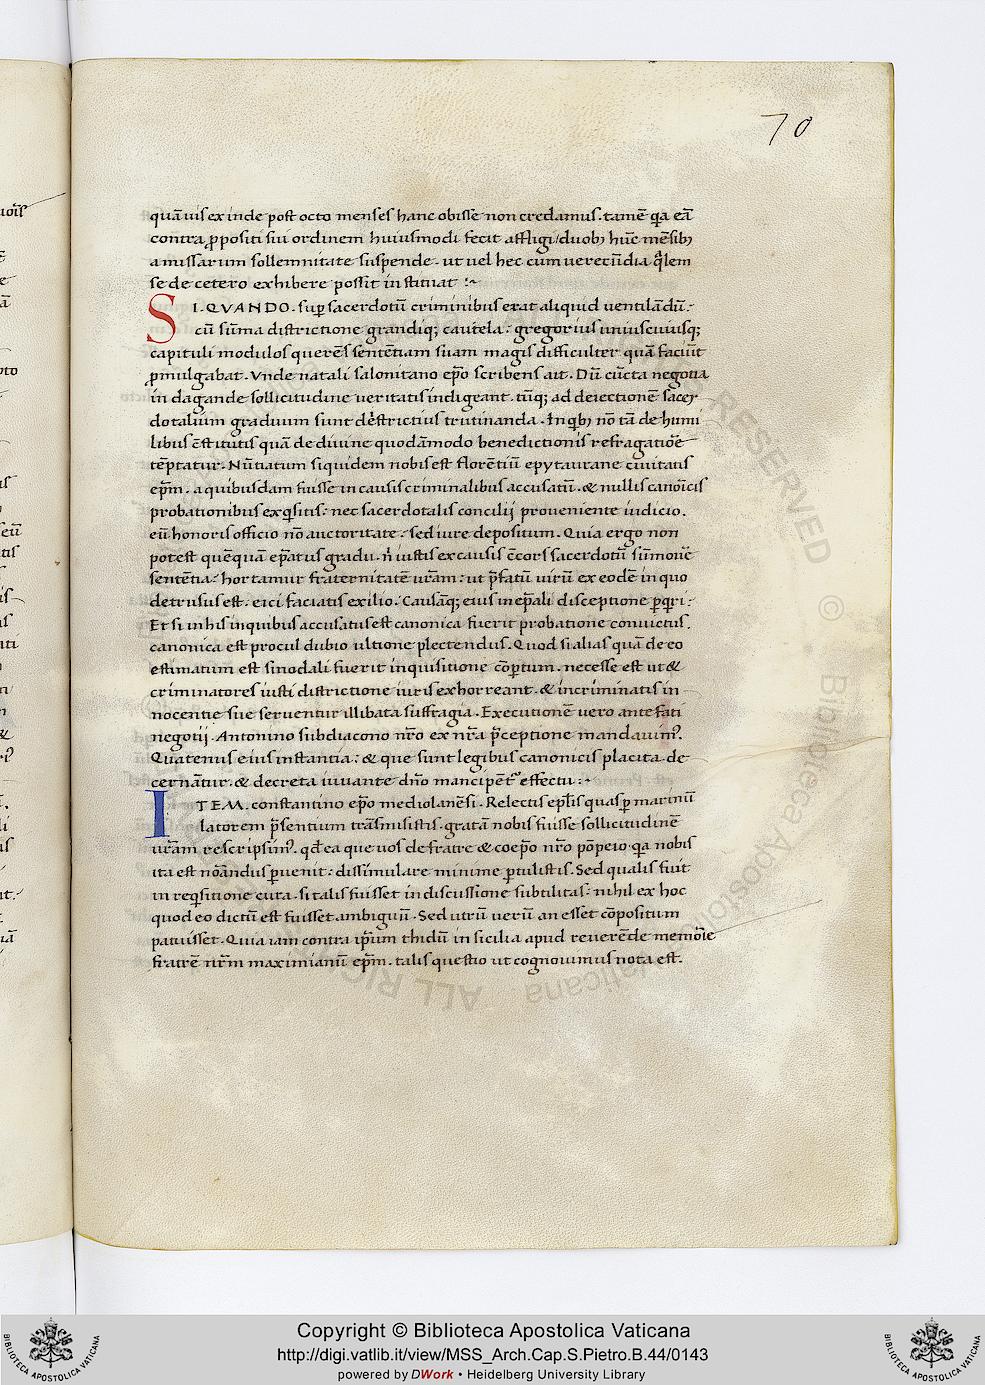 70
quāuis exinde post octo menses hanc obisse non credamus. tamē q̄a eā
contra p̱positi sui ordinem huiusmodi fecit affligi / duobꝫ hūc mēsibꝫ
a missarum sollemnitate suspende. ut uel hec cum uerecūdia q̄lem
se de cetero exhibere possit instituat :~
SI. QVANDO. sup̱ sacerdotū criminibus erat aliquid uentilādū:
cū sūma districtione grandiq; cautela: gregorius uniuscuiusq;
capituli modulos querēs sententiam suam magis difficulter quā faciūt
p̱mulgabat. Vnde natali salonitano ep̄o scribens ait. Dū cūcta negotia
indagande sollicitudine ueritatis indigeant. tūq; ad deiectionē sacer
dotalium graduum sunt dēstrictius trutinanda. In qͥbꝫ nō tā de humi
libus cōstitutis quā de diuine quodāmodo benedictionis refragatiōe
tēptatur. Nūtiatum siquidem nobis est florētiū epytaurane ciuitatis
ep̄m. a quibusdam fuisse in causis criminalibus accusatū. & nullis canōicis
probationibus exqͥsitis: nec sacerdotalis concilij proueniente iudicio.
eū honoris officio nō auctoritate: sed iure depositum. Quia ergo non
potest quēquā ep̄atus gradu. n̄ iustis ex causis cōcors sacerdotū sūmouē
sentētia: hortamur fraternitatē ur̄am: ut p̄fatū uirū ex eodē in quo
detrusus est. eici faciatis exilio. Causāq; eius in ep̄ali disceptione p̱qͥri:
Et si in his in quibus accusatus est canonica fuerit probatione conuictus.
canonica est procul dubio ultione plectendus. Quod si alias quā de eo
estimatum est sinodali fuerit inquisitione cōp̱tum. necesse est ut &
criminatores iusti districtione iuris exhorreant. & incriminatis in
nocentie sue seruentur illibata suffragia. Executionē uero ante fati
negotij. Antonino subdiacono nr̄o ex nr̄a p̄ceptione mandauimꝰ.
Quatenus eius instantia: & que sunt legibus canonicis placita de
cernātur. & decreta iuuante dn̄o mancipēt effectu :~
ITEM. constantino ep̄o mediolanēsi. Relectis ep̄lis quas p̱ marinū
latorem p̄sentium trāsmisistis. gratā nobis fuisse sollicitudinē
ur̄am rescripsimꝰ. qd̄ ea que uos de fratre & coep̄o nr̄o pōpeio. q̄a nobis
ita est nōandus p̱uenit: dissimulare minime p̱tulistis. Sed qualis fuit
in reqͥsitione cura. si talis fuisset in discussione subtilitas: nihil ex hoc
quod eo dictū est fuisset ambiguū. Sed utrū uerū an esset cōpositum
patuisset. Quia iam contra ip̄ium thidū in sicilia apud reuerēde memōie
fratrē nr̄m maximianū ep̄m. talis questio ut cognouimus nota est.
Copyright © Biblioteca Apostolica Vaticana
http://digi.vatlib.it/view/MSS_Arch.Cap.S.Pietro.B.44/0143
powered by DWork • Heidelberg University Library